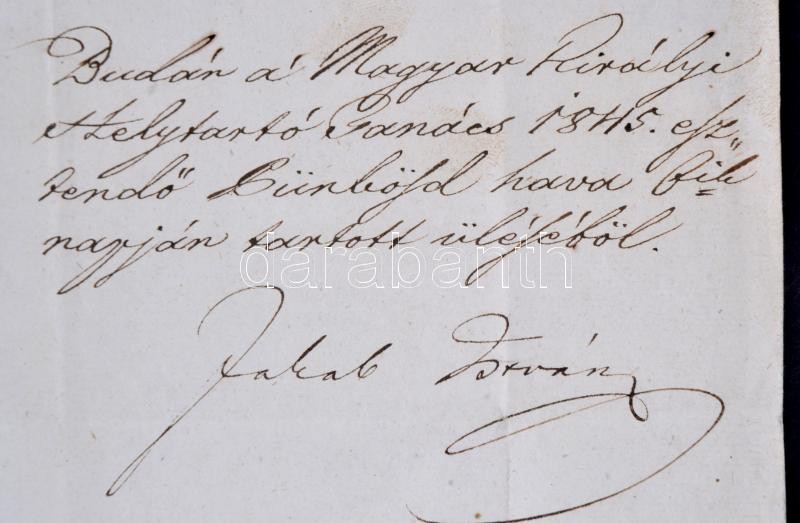 Budán á Magyar Királyi
Helytartó Tanács 1845. esz„
tendő Pünkösd hava
napján tartott üléséből.
darabanth
Jakab István